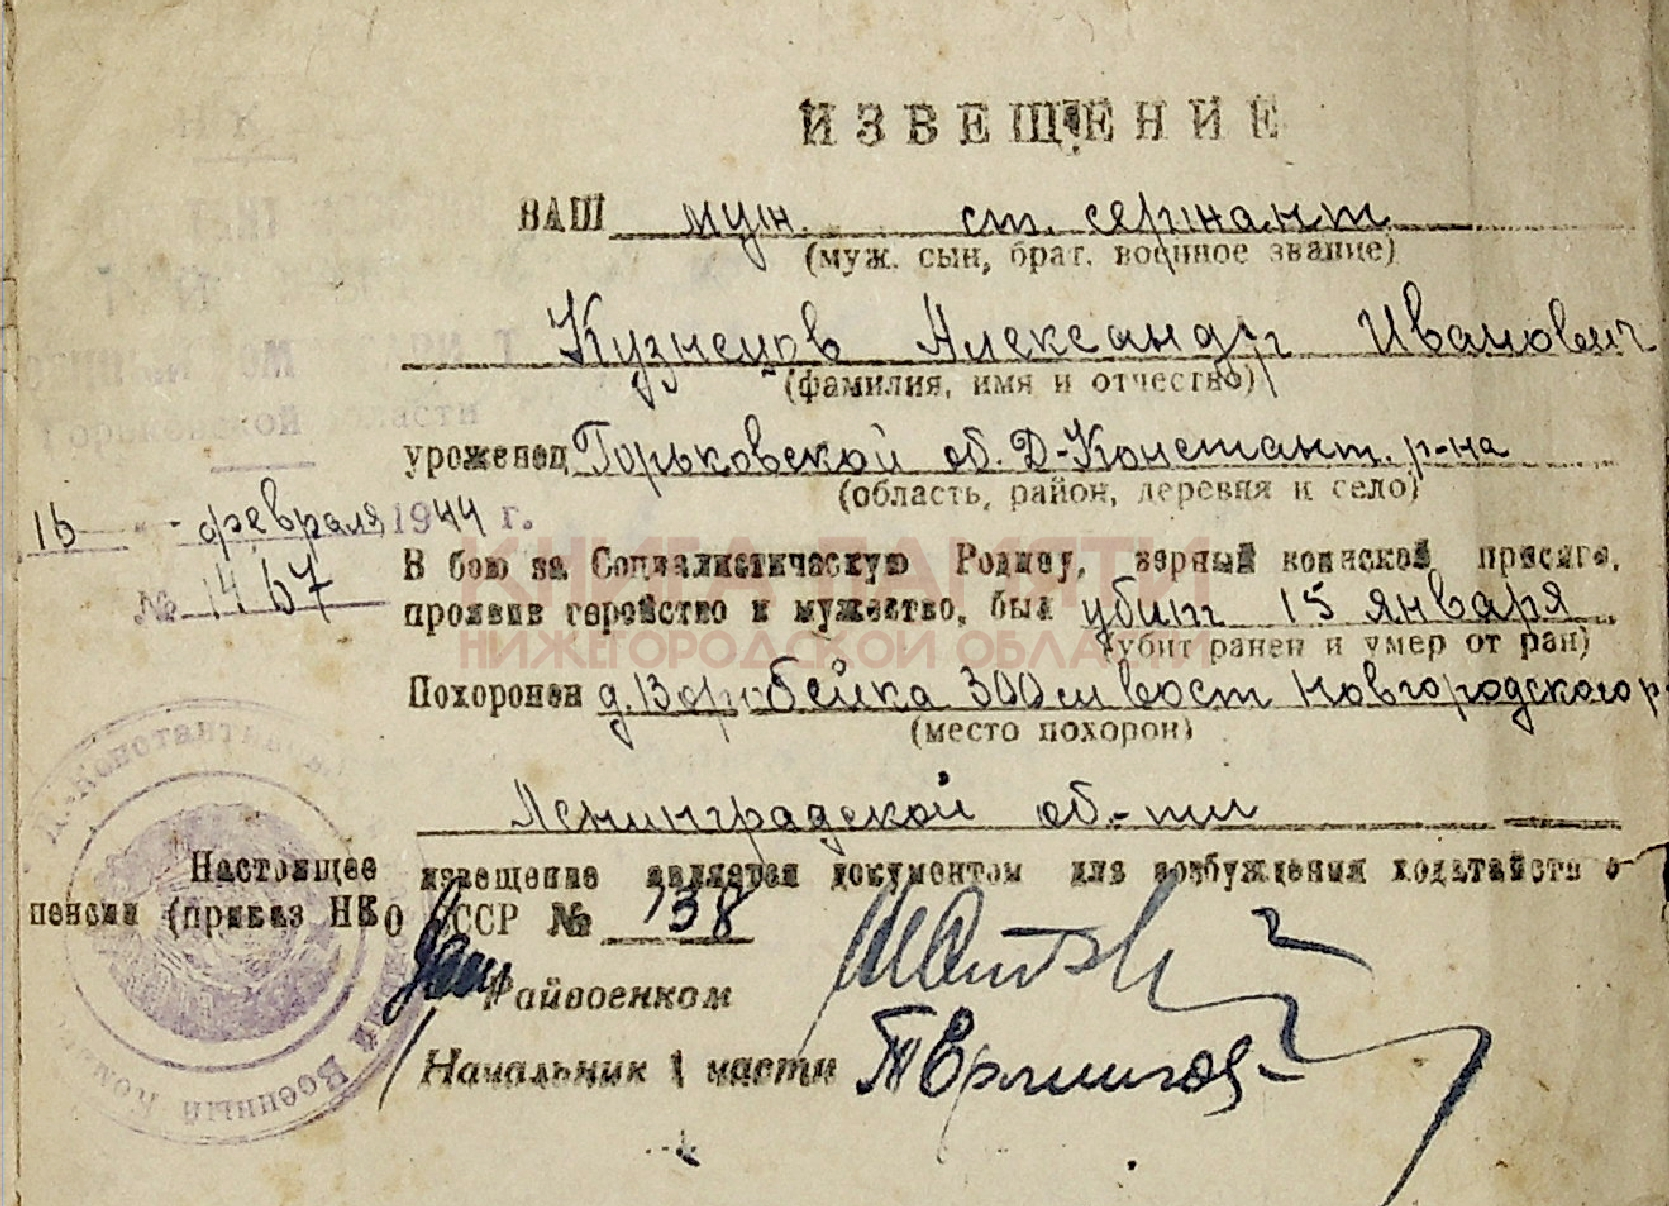 ИЗВЕЩЕНИЕ
ВАШ муж. ст. сержант
(муж. сын, брат. военное звание)
Кузнецов Александр Иванович
(фамилия, имя и отчество)
уроженец Горьковской об. Д-Констант. р-на
(область, район, деревня и село)
16 февраля 1944 г.
№ 1467
В бою за Социалистическую Родину, верный воинской присяге,
проявив геройство и мужество, был убит 15 января
(убит ранен и умер от ран)
Похоронен д. Воробейка 300 м вост Новгородского р
(место похорон)
Ленинградской об-ти
Настоящее извещение является документом для возбуждения ходатайств о
пенсии (приказ НКО СССР № 138
Райвоенком
Начальник 1 части
КНИГА ПАМЯТИ
НИЖЕГОРОДСКОЙ ОБЛАСТИ